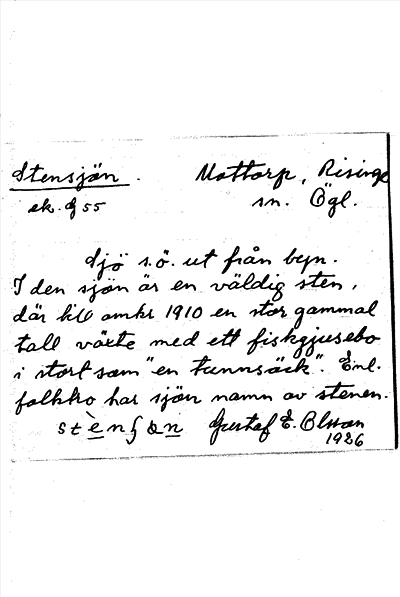 Stensjön. Mottorp, Risinge
ek. G 55 sn. Ögl.
Sjö s.ö. ut från byn.
I den sjön är en väldig sten,
där till omkr 1910 en stor gammal
tall växte med ett fiskgjusebo
i stort som "en tunnsäck". Enl.
folktro har sjön namn av stenen.
Gustaf E. Olsson
1926